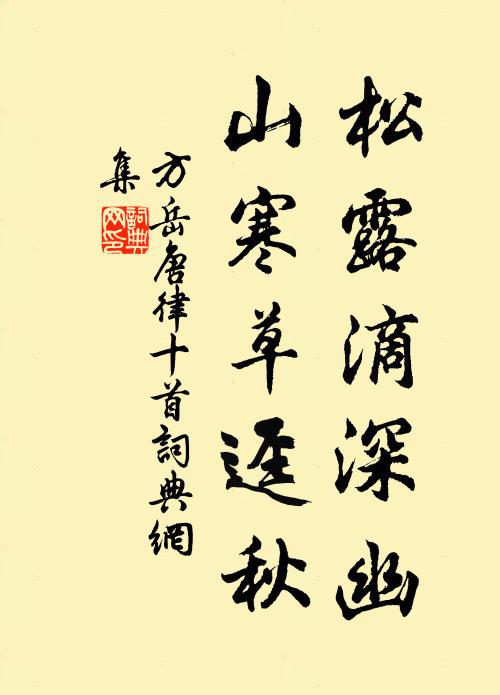 松露滴深幽
山寒草逕秋
方岳唐律十首詞典網
集
詞典
网印